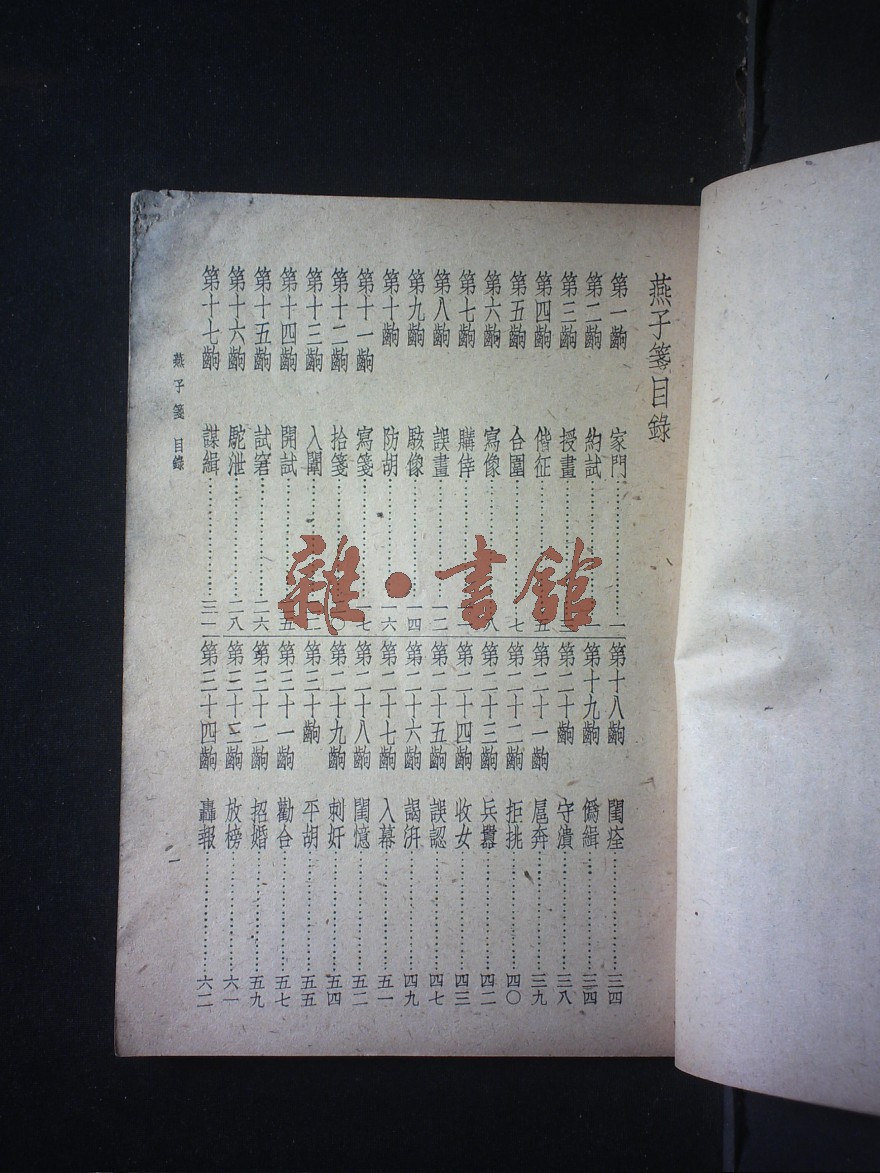 燕子箋目錄
第一齣 家門…………一
第二齣 約試…………
第三齣 授畫…………三
第四齣 偕征…………五
第五齣 合圍…………七
第六齣 寫像…………八
第七齣 購倖…………
第八齣 誤畫…………一二
第九齣 駭像…………一四
第十齣 防胡…………一六
第十一齣 寫箋…………一七
第十二齣 拾箋…………〇
第十三齣 入闈…………二
第十四齣 開試…………五
第十五齣 試窘…………二六
第十六齣 駝泄…………二八
第十七齣 謀緝…………三一
第十八齣 閨痊…………三四
第十九齣 偽緝…………三四
第二十齣 守潰…………三八
第二十一齣 扈奔…………三九
第二十二齣 拒挑…………四〇
第二十三齣 兵囂…………四二
第二十四齣 收女…………四三
第二十五齣 誤認…………四七
第二十六齣 謁汧…………四九
第二十七齣 入幕…………五一
第二十八齣 閨憶…………五二
第二十九齣 刺奸…………五四
第三十齣 平胡…………五五
第三十一齣 勸合…………五七
第三十二齣 招婚…………五九
第三十三齣 放榜…………六一
第三十四齣 轟報…………六二
燕子箋 目錄 一
雜·書館